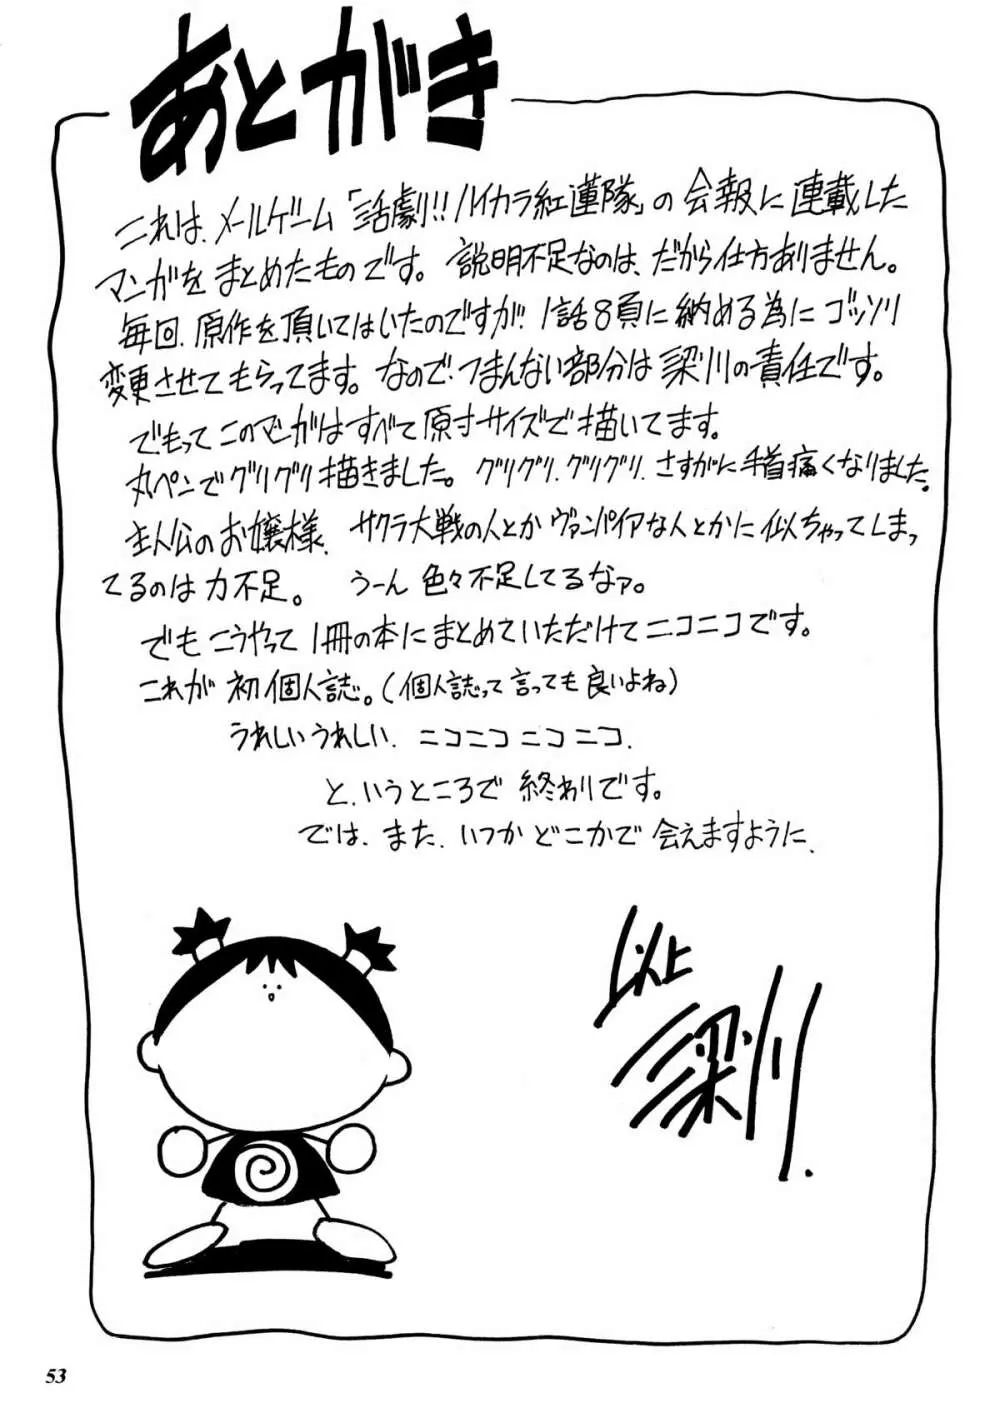 あとがき
これは、メールゲーム「活劇!!ハイカラ紅蓮隊」の会報に連載した
マンガをまとめたものです。説明不足なのは、だから仕方ありません。
毎回、原作を頂いてはいたのですが、1話8頁に納める為にゴッソリ
変更させてもらってます。なので、つまんない部分は梁川の責任です。
でもってこのマンガはすべて原寸サイズで描いてます。
丸ペンでグリグリ描きました。グリグリ、グリグリ、さすがに手首痛くなりました。
主人公のお嬢様、サクラ大戦の人とかヴァンパイアな人とかに似ちゃってしまっ
てるのは力不足。うーん色々不足してるなァ。
でもこうやって1冊の本にまとめていただけてニコニコです。
これが初個人誌。(個人誌って言っても良いよね)
うれしいうれしい、ニコニコニコニコ、
と、いうところで終わりです。
では、また、いつかどこかで会えますように、
以上
梁川.
53